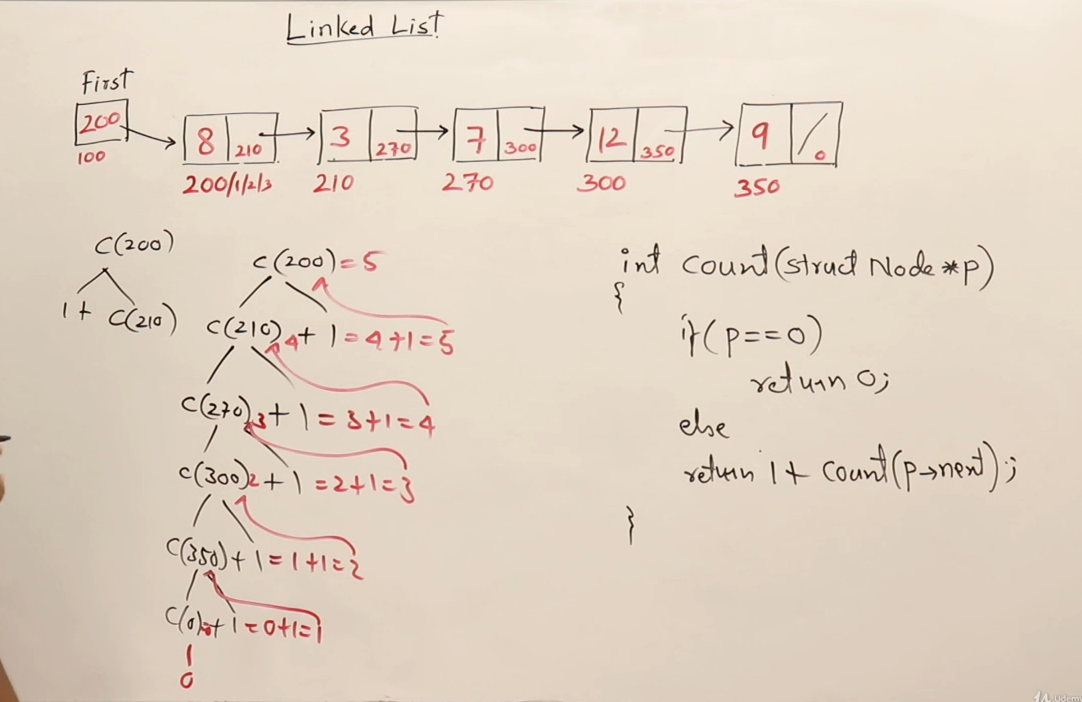 Linked List
First
200
100
8 210
200/1/2/3
3 270
210
7 300
270
12 350
300
9 0
350
C(200)
1 + C(210)
C(200) = 5
C(210) 4 + 1 = 4+1=5
C(270) 3 + 1 = 3+1=4
C(300) 2 + 1 = 2+1=3
C(350) + 1 = 1+1=2
C(0) 0 + 1 = 0+1=1
0
int count(struct Node *p)
{
if(p==0)
return 0;
else
return 1+ count(p→next);
}
Udemy